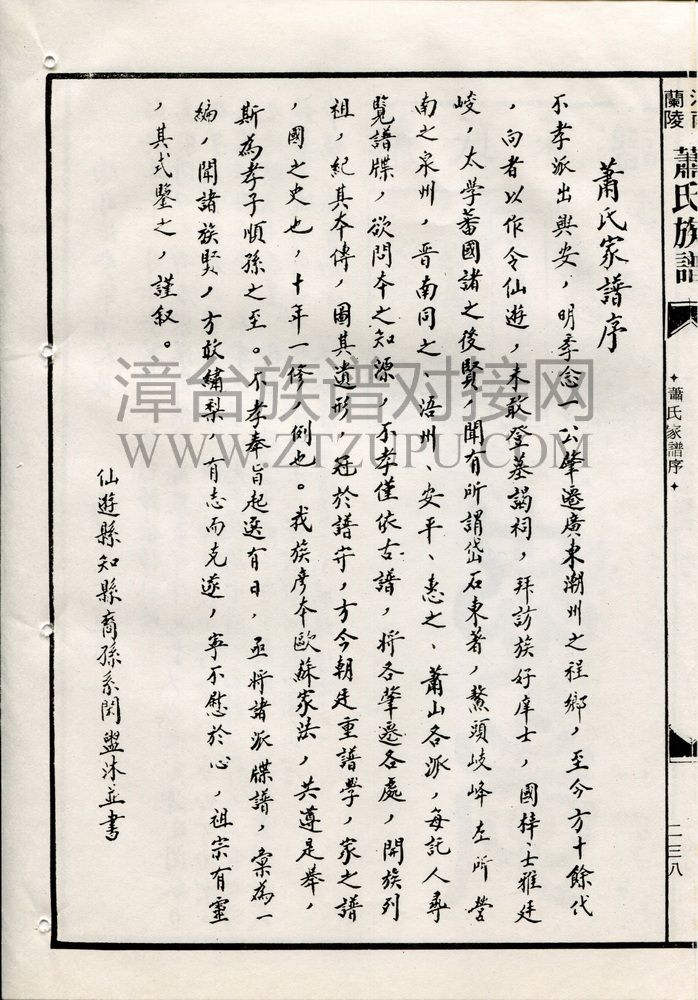 蘭陵
蕭氏族譜
蕭氏家譜序
二三八
蕭氏家譜序
不孝派出興安，明季念一公肇遷廣東潮州之程鄉，至今方十餘代
，向者以作令仙遊，未敢登墓謁祠，拜訪族好庠士，國梓、士雅廷
岐，太学蕃國諸之後賢，聞有所謂岱石東著，鰲頭岐峰左所營
南之泉州，晋南同之、浯州、安平、惠之、蕭山各派，每託人尋
覽譜牒，欲問本之知源，不孝僅依古譜，將各肇遷各處，開族列
祖，紀其本傳，圖其遺形，冠於譜守，方今朝廷重譜學，家之譜
，國之史也，十年一修，例也。我族彦本歐蘇家法，共遵是舉，
斯為孝子順孫之至。不孝奉旨起选有日，亟將諸派牒譜，彙為一
編，聞諸族賢，方敢繡梨，有志而克遂，寧不慰於心，祖宗有靈
，其式鑒之，謹叙。
仙遊縣知縣裔孫系閔盥沐並書
漳台族谱对接网
WWW.ZTZUPU.COM